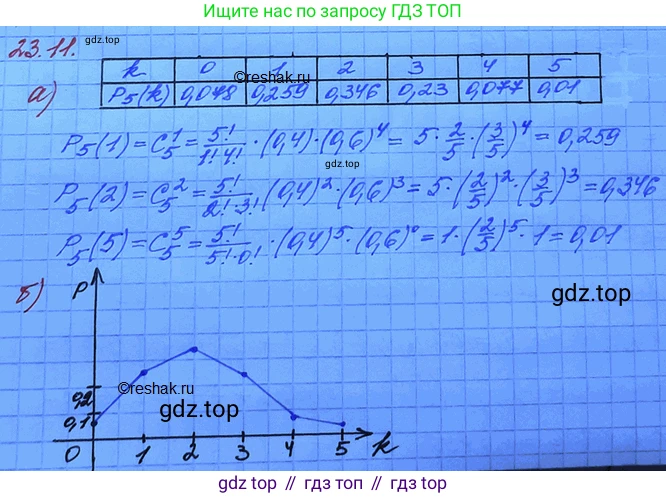 Ищите нас по запросу ГДЗ ТОП
23.11. gdz.top
k 0 1 2 3 4 5
а) P₅(k) 0,078 0,259 0,346 0,23 0,077 0,01
©reshak.ru
P₅(1) = C₅¹ = 5!/1!·4! · (0,4) · (0,6)⁴ = 5 · 2/5 · (3/5)⁴ = 0,259
gdz.top
P₅(2) = C₅² = 5!/2!·3! · (0,4)² · (0,6)³ = 5 · (2/5)² · (3/5)³ = 0,346
P₅(5) = C₅⁵ = 5!/5!·0! · (0,4)⁵ · (0,6)⁰ = 1 · (2/5)⁵ · 1 = 0,01
б) P
gdz.top
©reshak.ru
0,2
gdz.top
0,1
0 1 2 3 4 5 k
gdz.top // гдз.топ // gdz.top // гдз.топ